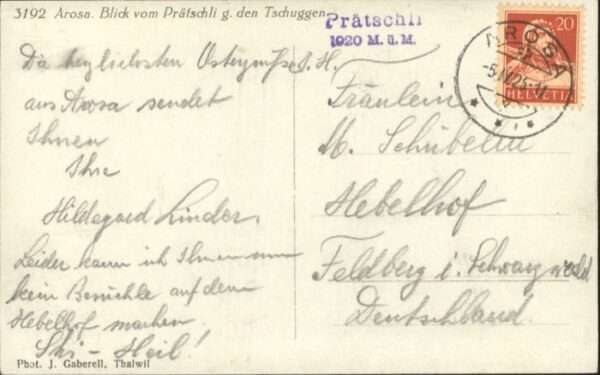 3192 Arosa. Blick vom Prätschli g. den Tschuggen
Prätschli
1920 M. ü. M.
20
HELVETIA
AROSA
Die herzlichsten Ostergrüsse
aus Arosa sendet
Ihnen
Ihre
Hildegard Linder.
Leider kann ich Ihnen nun
kein Besuchle auf dem
Hebelhof machen.
Ski-Heil!
S. H.
Fräulein
M.
Hebelhof
Feldberg i. Schwarzwald
Deutschland.
Phot. J. Gaberell, Thalwil